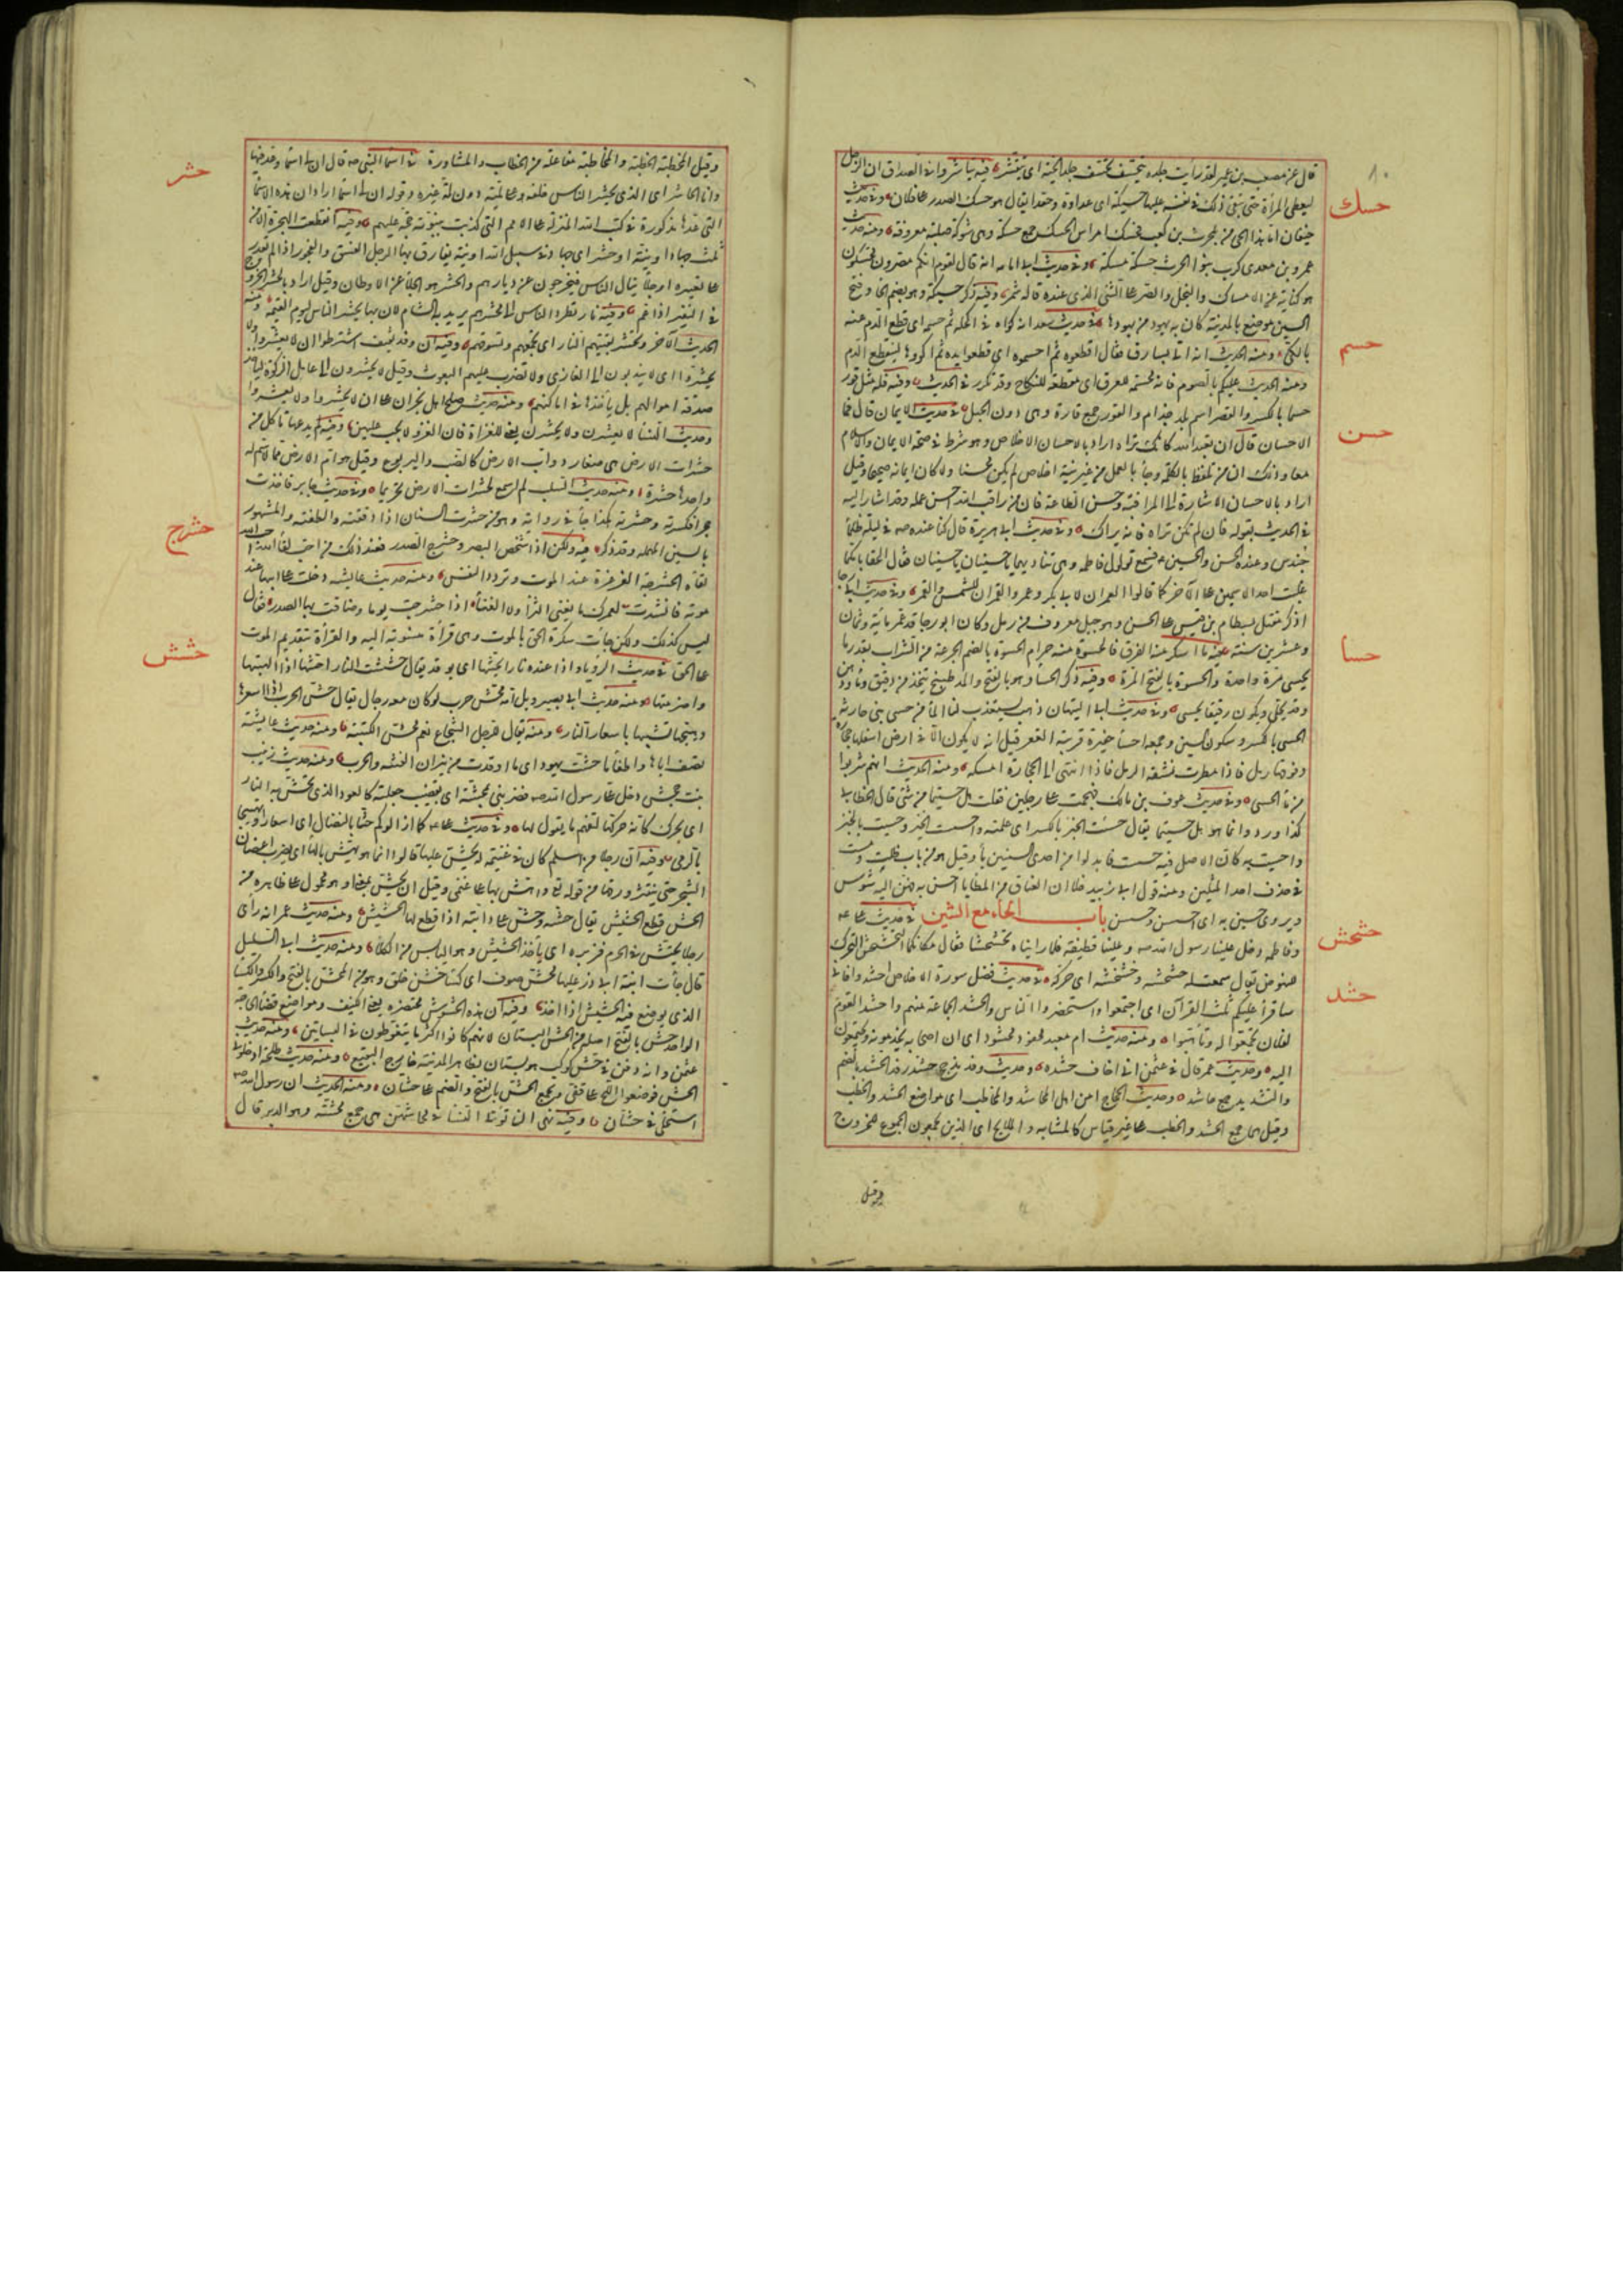 قال عن مصعب بن عمير لقد رأيت جلده يتحسف تحسف جلد الحية اى يتقشر فيه تياسروا فى الصداق ان الرجل
ليعطى المرأة حتى يبقى ذلك فى نفسه عليها حسيكة اى عداوة وحقدا يقال هو حسك الصدر على فلان وفى حديث
حسك
خيفان اما هذا الحى من بلحرث بن كعب فحسك امراس الحسك جمع حسكة وهى شوكة صلبة معروفة ومنه حديث
عمرو بن معدى كرب بنوا الحرث حسكة مسكة وفى حديث ابى امامه انه قال لقوم انكم مصرون محسكون
هو كناية عن الامساك والبخل والصر على الشئ الذى عنده قاله شمر وفيه ذكر حسيكة وهو بضم الحا وفتح
السين موضع بالمدينة كان به يهود من يهودها فى حديث سعد انه كواه فى اكحله ثم حسمه اى قطع الدم عنه
حسم
بالكى ومنه الحديث انه اتى بسارق فقال اقطعوه ثم احسموه اى اقطعوا يده ثم اكووها لينقطع الدم
ومنه الحديث عليكم بالصوم فانه محسمة للعرق اى مقطعة للنكاح وقد تكرر فى الحديث وفيه فله مثل قور
حسما بالكسر والقصر اسم بلد جذام والقور جمع قارة وهى دون الجبل فى حديث الايمان قال فما
حسن
الاحسان قال ان تعبد الله كانك تراه اراد بالاحسان الاخلاص وهو شرط فى صحة الايمان والاسلام
معا وذلك ان من تلفظ بالكلمة وجأ بالعمل من غير نية اخلاص لم يكن محسنا ولا كان ايمانه صحيحا وقيل
اراد بالاحسان الاشارة الى المراقبة وحسن الطاعة فان من راقب الله احسن عمله وقد اشار اليه
فى الحديث بقوله فان لم تكن تراه فانه يراك وفى حديث ابى هريرة قال كنا عنده صه فى ليلة ظلمأ
حندس وعنده الحسن والحسين فسمع تولول فاطمة وهى تناديهما ياحسنان ياحسينان فقال الحقا بامكما
غلبت احد الاسمين على الآخر كما قالوا العمران لابى بكر وعمر والقمران للشمس والقمر وفى حديث ابى رجا
اذكر مقتل بسطام بن قيس على الحسن وهو جبل معروف من رمل وكان ابو رجا قد عمر مائة وثمان
وعشرين سنة فيه ما اسكر منه الفرق فالحسوة منه حرام الحسوة بالضم الجرعة من الشراب بقدر ما
حسا
يحسى مرة واحدة والحسوة بالفتح المرة وفيه ذكر الحسا وهو بالفتح والمد طبيخ يتخذ من دقيق وما ودهن
وقد يحلى ويكون رقيقا يحسى وفى حديث ابى التيهان ذهب يستعذب لنا المأ من حسى بنى حارثه
الحسى بالكسر وسكون السين وجمعه احسأ حفيرة قريبة القعر قيل انه لا يكون الا فى ارض اسفلها حجارة
وفوقها رمل فاذا مطرت نشفه الرمل فاذا انتهى الى الحجارة امسكه ومنه الحديث انهم شربوا
من مأ الحسى وفى حديث عوف بن مالك فهجمت على رجلين فقلت هل حستما من شئ قال الخطابى
كذا ورد وانما هو هل حسيتما يقال حست الخبر بالكسر اى علمته واحست الخبر وحسيت بالخبر
واحسيت به كان الاصل فيه حسست فابدلوا من احدى السينين يأ وقيل هو من باب ظلت ومست
فى حذف احد المثلين ومنه قول ابى زبيد خلا ان العتاق من المطايا احسن به فهن اليه شوس
ويروى حسين به اى احسسن وحسسن باب الحاء مع الشين فى حديث على عه
وفاطمه دخل علينا رسول الله صه وعلينا قطيفة فلما رايناه تحشحشنا فقال مكانكما التحشحش التحرك
حشحش
للنهوض يقال سمعت له حشحشه وخشخشه اى حركة فى حديث فضل سورة الاخلاص احشدوا فانى
حشد
ساقرأ عليكم ثلث القرآن اى اجتمعوا واستحضروا الناس والحشد الجماعة منهم واحتشد القوم
لفلان تجمعوا له وتاهبوا ومنه حديث ام معبد محفود محشود اى ان اصحابه يخدمونه ويجتمعون
اليه وحديث عمر قال فى عثمن انى اخاف حشده وحديث وفد مذحج حشد رفد الحشد بالضم
والتشديد جمع حاشد وحديث الحجاج امن اهل المحاشد والمخاطب اى مواضع الحشد والخطب
وقيل هما جمع الحشد والخطب على غير قياس كالمشابه والملامح اى الذين يجمعون الجموع للخروج
وقيل
وقيل المخطبة الخطبة والمخاطبة مفاعلة من الخطاب والمشاورة فى اسما النبى صه قال ان لى اسما وعد فيها
حشر
وانا الحاشر اى الذى يحشر الناس خلفه وعلى ملته دون ملة غيره وقوله ان لى اسما اراد ان هذه الاسما
التى عدها مذكورة فى كتب الله المنزلة على الامم التى كذبت بنبوته حجة عليهم وفيه انقطعت الهجرة الا من
ثلث جهاد او نية او حشر اى جهاد فى سبيل الله او نية يفارق بها الرجل الفسق والفجور اذا لم يقدر
على تغييره او جلأ ينال الناس فيخرجون عن ديارهم والحشر هو الجلأ عن الاوطان وقيل اراد بالحشر الخروج
فى النفير اذا عم وفيه نار تطرد الناس الى محشرهم يريد به الشام لان بها يحشر الناس ليوم القيمة ومنه
الحديث الآخر وتحشر بقيتهم النار اى تجمعهم وتسوقهم وفيه ان وفد ثقيف اشترطوا ان لا يعشروا ولا
يحشروا اى لا يندبون الى المغازى ولا تضرب عليهم البعوث وقيل لا يحشرون الى عامل الزكوة لياخذ
صدقة اموالهم بل ياخذها فى اماكنهم ومنه حديث صلح اهل نجران على ان لا يحشروا ولا يعشروا
وحديث النسأ لا يعشرن ولا يحشرن يعنى للغزاة فان الغزو لا يجب عليهن وفيه لم يدعها تاكل من
حشرات الارض هى صغار دواب الارض كالضب واليربوع وقيل هوام الارض مما لا سم له
واحدها حشرة ومنه حديث التلب لم اسمع لحشرات الارض تحريما وفى حديث جابر فاخذت
حجرا فكسرته وحشرته هكذا جأ فى رواية وهو من حشرت السنان اذا دققته والطفته والمشهور
بالسين المهمله وقد ذكر فيه ولكن اذا شخص البصر وحشرج الصدر فعند ذلك من احب لقأ الله احب الله
حشرج
لقاه الحشرجة الغرغرة عند الموت وتردد النفس ومنه حديث عايشه دخلت على ابيها عند
موته فانشدت لعمرك ما يغنى الثرأ ولا الغنأ اذا حشرجت يوما وضاقت بها الصدر فقال
ليس كذلك ولكن جأت سكرة الحق بالموت وهى قرأة منسوبة اليه والقرأة بتقديم الموت
على الحق فى حديث الرويا واذا عنده نار يحشها اى يوقدها يقال حششت النار احشها اذا الهبتها
حشش
واضرمتها ومنه حديث ابى بصير ويل امه محش حرب لو كان معه رجال يقال حش الحرب اذا اسعرها
وهيجها تشبيها باسعار النار ومنه يقال للرجل الشجاع نعم محش الكتيبة ومنه حديث عايشة
تصف اباها واطفأ ما حشت يهود اى ما اوقدت من نيران الفتنة والحرب ومنه حديث زينب
بنت جحش دخل على رسول الله صه فضربنى بمحشة اى بقضيب جعلته كالعود الذى تحش به النار
اى تحرك كانه حركها لتفهم ما يقول لها وفى حديث على عه كما ازالوكم حشا بالنصال اى اسعارا وتهييجا
بالرمى وفيه ان رجلا من اسلم كان فى غنيمة له يحش عليها قالوا انما هو يهش بالهأ اى يضرب اغصان
الشجر حتى ينتثر ورقها من قوله تعا واهش بها على غنمى وقيل ان يحش بمعناه او هو محمول على ظاهره من
الحش قطع الحشيش يقال حشه وحش على دابته اذا قطع لها الحشيش ومنه حديث عمر انه رأى
رجلا يحتش فى الحرم فزبره اى ياخذ الحشيش وهو اليابس من الكلأ ومنه حديث ابى السليل
قال جأت ابنة ابى ذر عليها محش صوف اى كسأ خشن خلق وهو من المحش بالفتح والكسر الكسأ
الذى يوضع فيه الحشيش اذا اخذ وفيه ان هذه الحشوش محتضرة يعنى الكنف ومواضع قضأ الحاجة
الواحد حش بالفتح اصله من الحش البستان لانهم كانوا اكثر ما يتغوطون فى البساتين ومنه حديث
عثمن وانه دفن فى حش كوكب هو بستان بظاهر المدينة خارج البقيع ومنه حديث طلحة ادخلونى
الحش فوضعوا اللج على قفى ويجمع الحش بالفتح والضم على حشان ومنه الحديث ان رسول الله صه
استخلى فى حشان وفيه نهى ان توتى النسأ فى محاشهن هى جمع محشة وهو الدبر قال